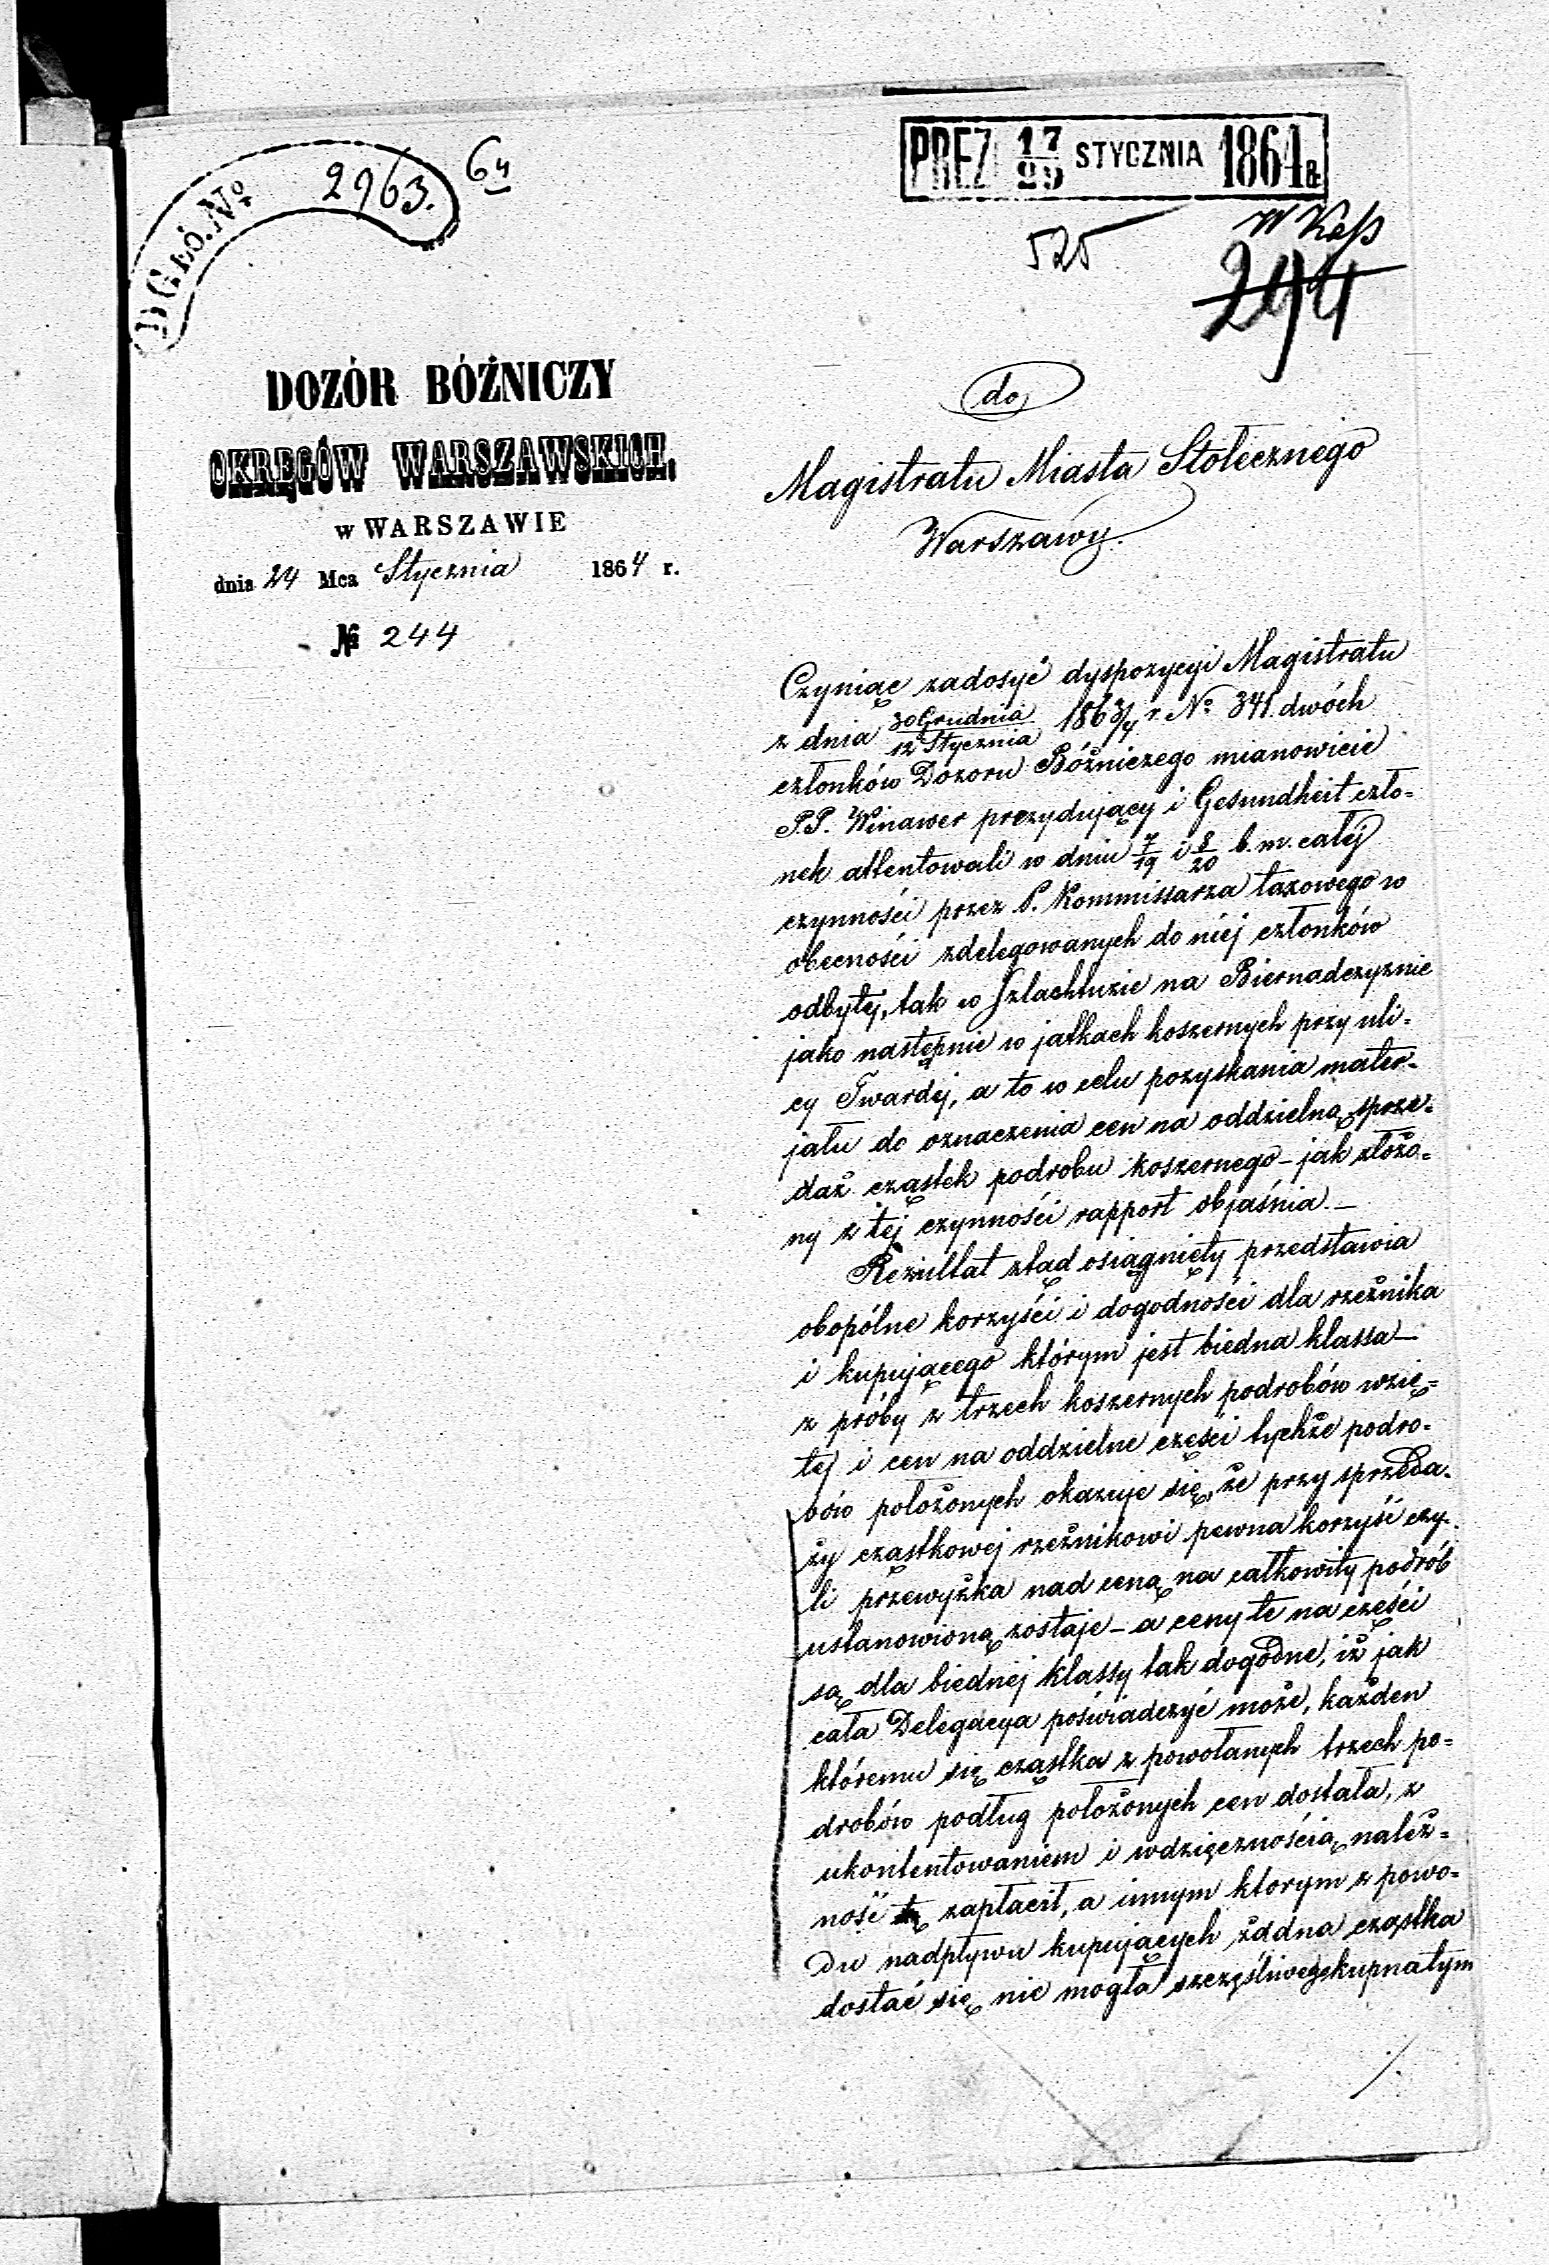 DGŁó. No 2963. 64
PREZ 17/29 STYCZNIA 1864 r.
W Kass
525
294
DOZÓR BÓŹNICZY
OKRĘGÓW WARSZAWSKICH,
w WARSZAWIE
dnia 24 Mca Stycznia 1864 r.
№ 244
do
Magistratu Miasta Stołecznego
Warszawy.
Czyniąc zadosyć dyspozycyi Magistratu
z dnia 30 Grudnia/12 Stycznia 1863/4 r. No 341. dwóch
członków Dozoru Bóżniczego mianowicie
P.P. Winawer prezydujący i Gesundheit czło=
nek attentowali w dniu 7/19 i 8/20 b. m. całej
czynności przez P. Kommissarza taxowego w
obecności zdelegowanych do niéj członków
odbytej, tak w Szlachtuzie na Biernadczyznie
jako następnie w jatkach koszernych przy uli=
cy Twardej, a to w celu pozyskania mater=
jału do oznaczenia cen na oddzielną sprze=
daż cząstek podrobu koszernego – jak złożo=
ny z tej czynności rapport objaśnia. –
Rezultat ztąd osiągnięty przedstawia
obopólne korzyści i dogodności dla rzeźnika
i kupującego którym jest biedna klassa –
z próby z trzech koszernych podrobów wzię=
tej i cen na oddzielne części tychże podro=
bów położonych okazuje się, że przy sprzeda=
ży cząstkowej rzeźnikowi pewna korzyść czy=
li przewyżka nad ceną na całkowity podrób
ustanowioną zostaje – a ceny te na części
są dla biednéj klassy tak dogodne, iż jak
cała Delegacya poświadczyć może, każden
któremu się cząstka z powołanych trzech po=
drobów podług położonych cen dostała, z
ukontentowaniem i wdzięcznością należ=
ność tę zapłacił, a innym ktorym z powo=
du nadpływu kupujących żadna cząstka
dostać się nie mogła szczęśliwego kupna tym
./.